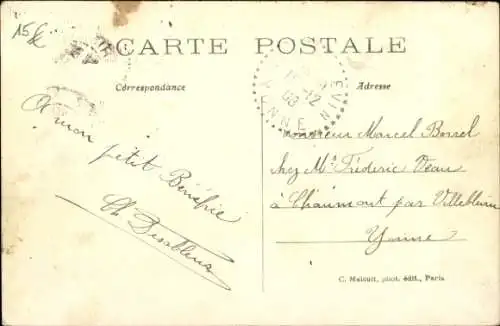 15k
CARTE POSTALE
Correspondance
Adresse
YONNE
A mon
petit Bénéfice
Monsieur Marcel Borsel
chez Mr Fréderic Veau
à Chaumont par Villebleuin
Yonne
C. Malcuit, phot. édit., Paris